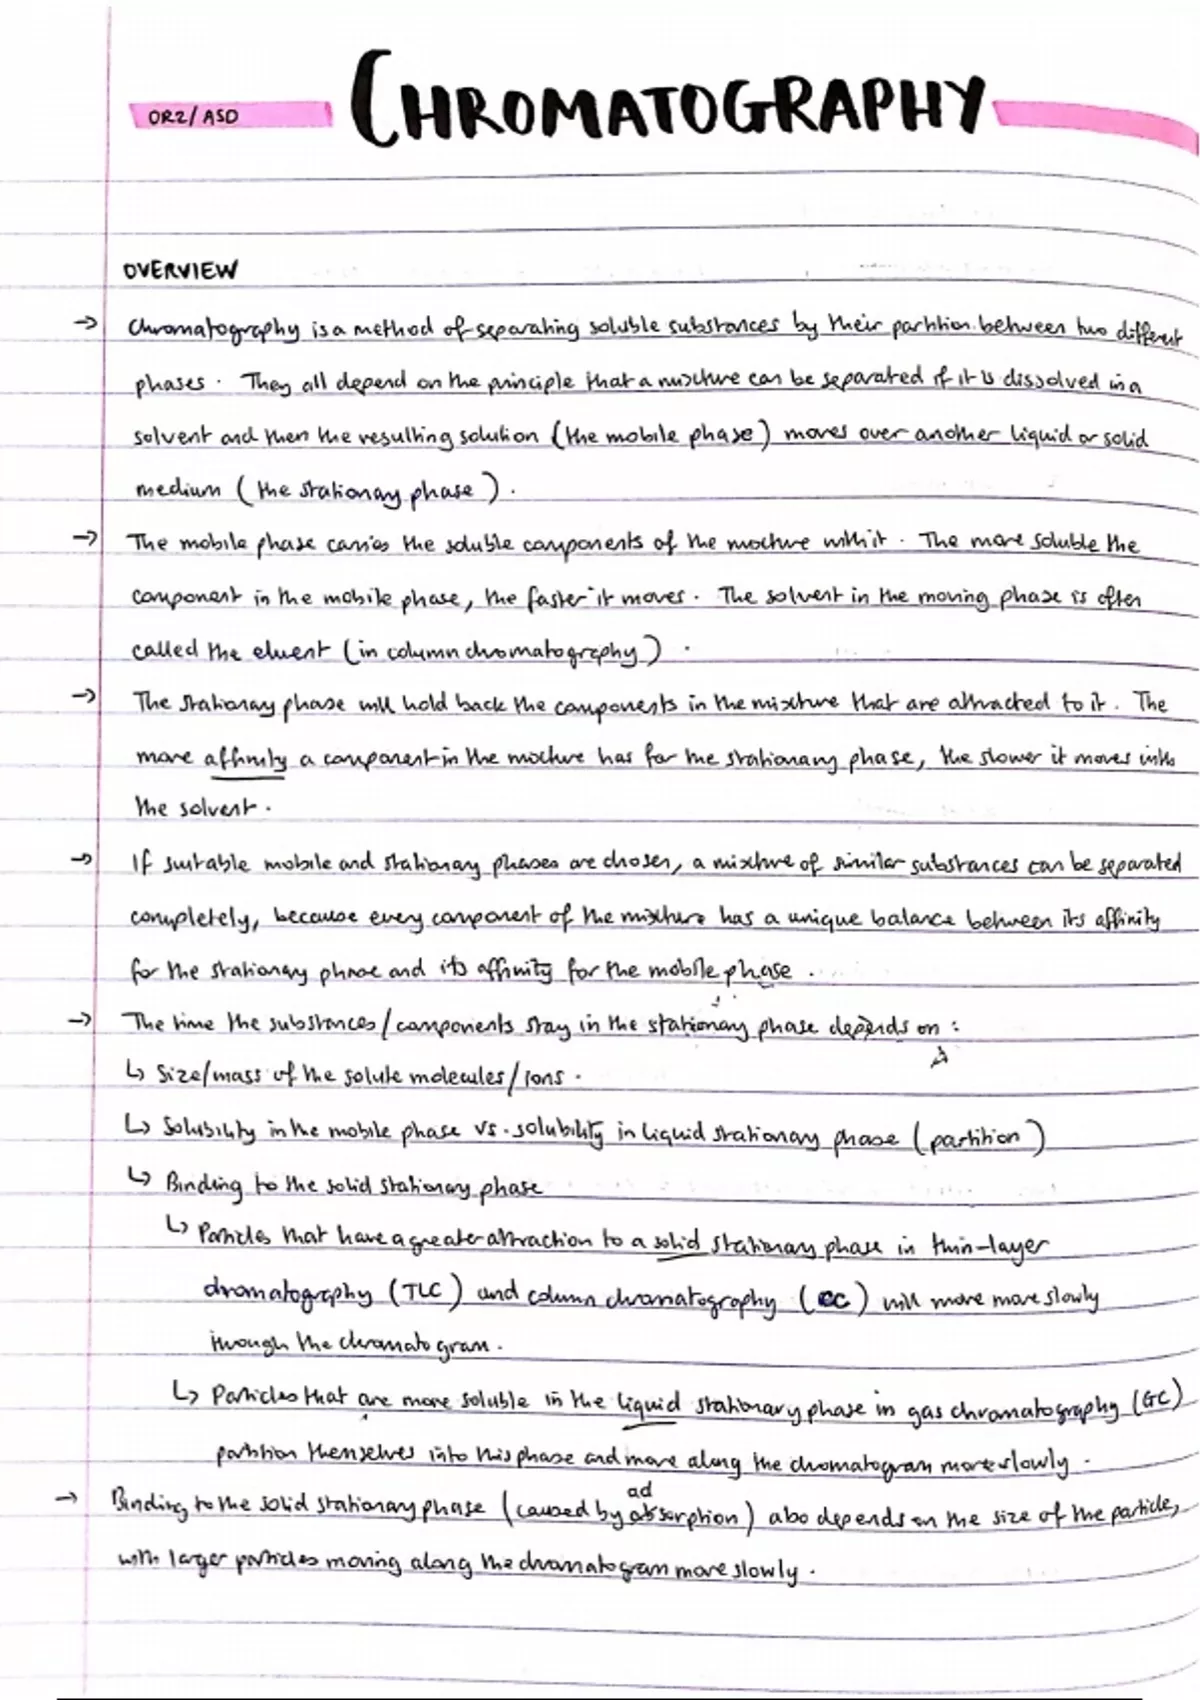 OR2/ASD CHROMATOGRAPHY
OVERVIEW
→ Chromatography is a method of separating soluble substances by their partition between two different
phases. They all depend on the principle that a mixture can be separated if it is dissolved in a
solvent and then the resulting solution (the mobile phase) moves over another liquid or solid
medium (the stationary phase).
→ The mobile phase carries the soluble components of the mixture with it. The more soluble the
component in the mobile phase, the faster it moves. The solvent in the moving phase is often
called the eluent (in column chromatography).
→ The stationary phase will hold back the components in the mixture that are attracted to it. The
more affinity a component in the mixture has for the stationary phase, the slower it moves with
the solvent.
→ If suitable mobile and stationary phases are chosen, a mixture of similar substances can be separated
completely, because every component of the mixture has a unique balance between its affinity
for the stationary phase and its affinity for the mobile phase.
→ The time the substances/components stay in the stationary phase depends on:
↳ Size/mass of the solute molecules/ions.
↳ Solubility in the mobile phase vs. solubility in liquid stationary phase (partition)
↳ Binding to the solid stationary phase
↳ Particles that have a greater attraction to a solid stationary phase in thin-layer
chromatography (TLC) and column chromatography (CC) will move more slowly
through the chromatogram.
↳ Particles that are more soluble in the liquid stationary phase in gas chromatography (GC)
partition themselves into this phase and move along the chromatogram more slowly.
ad
→ Binding to the solid stationary phase (caused by absorption) also depends on the size of the particle,
with larger particles moving along the chromatogram more slowly.